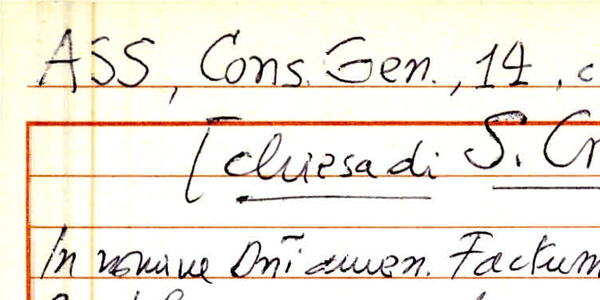 ASS, Cons. Gen., 14, c
[chiesa di S. Cr
In nomine Dñi amen. Factum